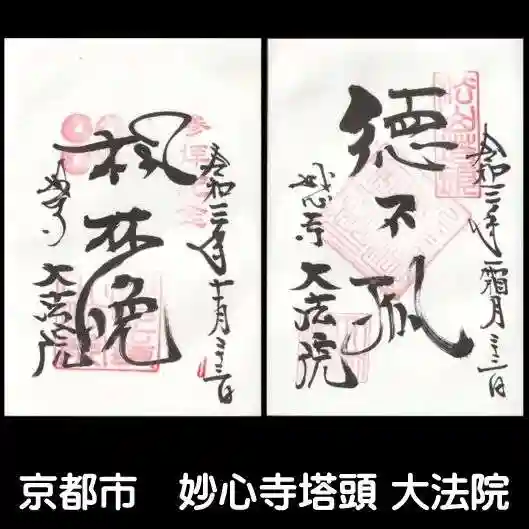 令和三年十一月二十三日
参拝記念
楓林晩
妙心寺
大法院
令和三年霜月二十三日
徳不孤
妙心寺
大法院
京都市　妙心寺塔頭 大法院